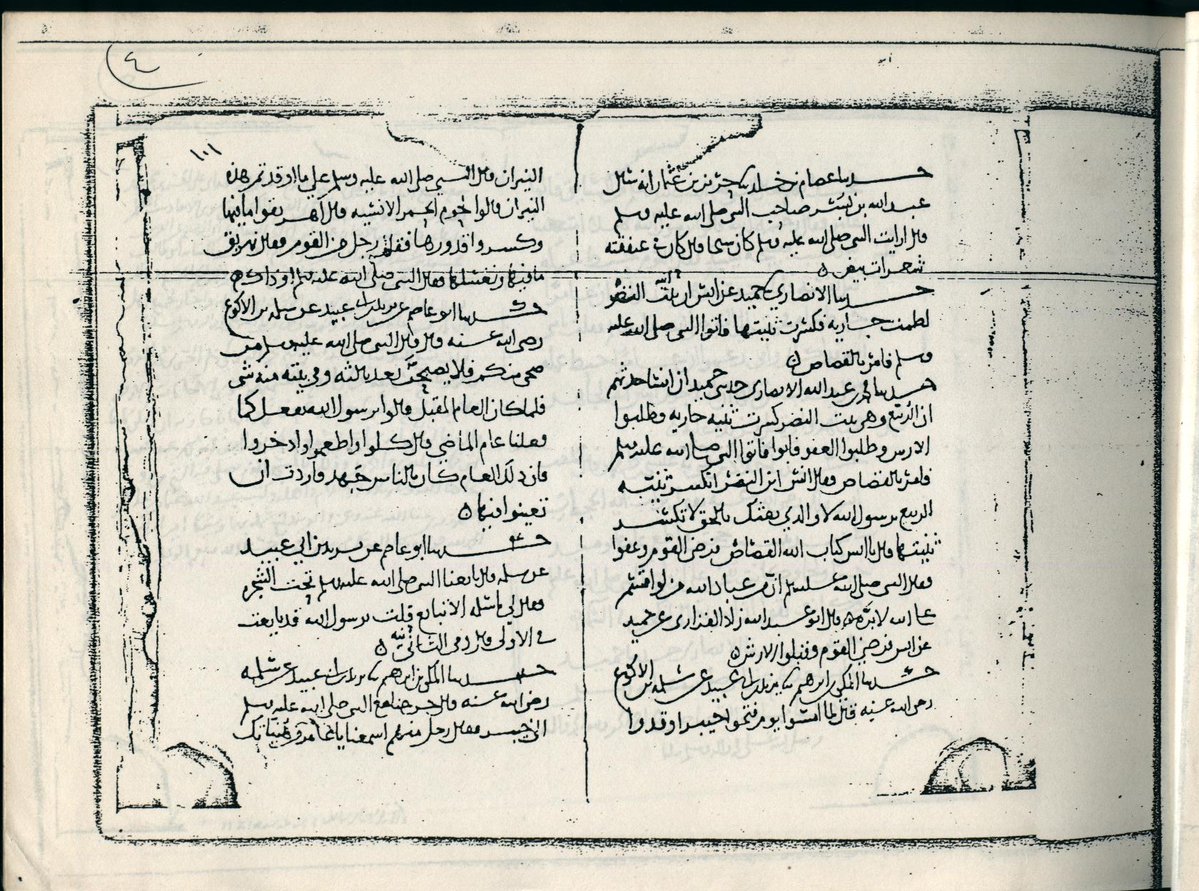 ٤
حدثنا عصام بن خالد نا حريز بن عثمان انه سال
عبد الله بن بسر صاحب النبي صلى الله عليه وسلم
قال ارايت النبي صلى الله عليه وسلم كان شيخا قال كان في عنفقته
شعرات بيض ه
حدثنا الانصاري نا حميد عن انس ان ابنت النضر
لطمت جاريه فكسرت ثنيتها فاتوا النبي صلى الله عليه
وسلم فامر بالقصاص ه
حدثنا محمد بن عبد الله الانصاري حدثني حميد ان انسا حدثهم
ان الربيع وهي بنت النضر كسرت ثنيه جاريه وطلبوا
الارش وطلبوا العفو فابوا فاتوا النبي صلى الله عليه وسلم
فامر بالقصاص وقال انس ابن النضر اتكسر ثنيه
الربيع يرسول الله لا والذي بعثك بالحق لا تكسر
ثنيتها قال يا انس كتاب الله القصاص فرضي القوم وعفوا
وقال النبي صلى الله عليه وسلم ان من عباد الله من لو اقسم
على الله لابره ه قال ابو عبد الله زاد الفزاري عن حميد
عن انس فرضي القوم وقبلوا الارش ه
حدثنا المكي بن ابرهيم نا يزيد بن ابي عبيد عن سلمه بن الاكوع
رضي الله عنه قال لما امسوا يوم فتحوا خيبر اوقدوا
١٠١
النيران قال النبي صلى الله عليه وسلم على ما اوقدتم هذه
النيران قالوا لحوم الحمر الانسيه قال اهريقوا ما فيها
وكسروا قدورها فقام رجل من القوم فقال نهريق
ما فيها ونغسلها فقال النبي صلى الله عليه وسلم او ذاك ه
حدثنا ابو عاصم عن يزيد بن ابي عبيد عن سلمه بن الاكوع
رضي الله عنه قال قال النبي صلى الله عليه وسلم من
ضحى منكم فلا يصبحن بعد ثالثه وفي بيته منه شي
فلما كان العام المقبل قالوا يرسول الله نفعل كما
فعلنا عام الماضي قال كلوا واطعموا وادخروا
فان ذلك العام كان بالناس جهد فاردت ان
تعينوا فيها ه
حدثنا ابو عاصم عن يزيد بن ابي عبيد
عن سلمه قال بايعنا النبي صلى الله عليه وسلم تحت الشجره
فقال لي يا سلمه الا تبايع قلت يرسول الله قد بايعت
في الاولى قال وفي الثانيه ه
حدثنا المكي بن ابرهيم نا يزيد بن ابي عبيد عن سلمه
رضي الله عنه قال خرجنا مع النبي صلى الله عليه وسلم
الى خيبر فقال رجل منهم اسمعنا يا عامر من هنياتك